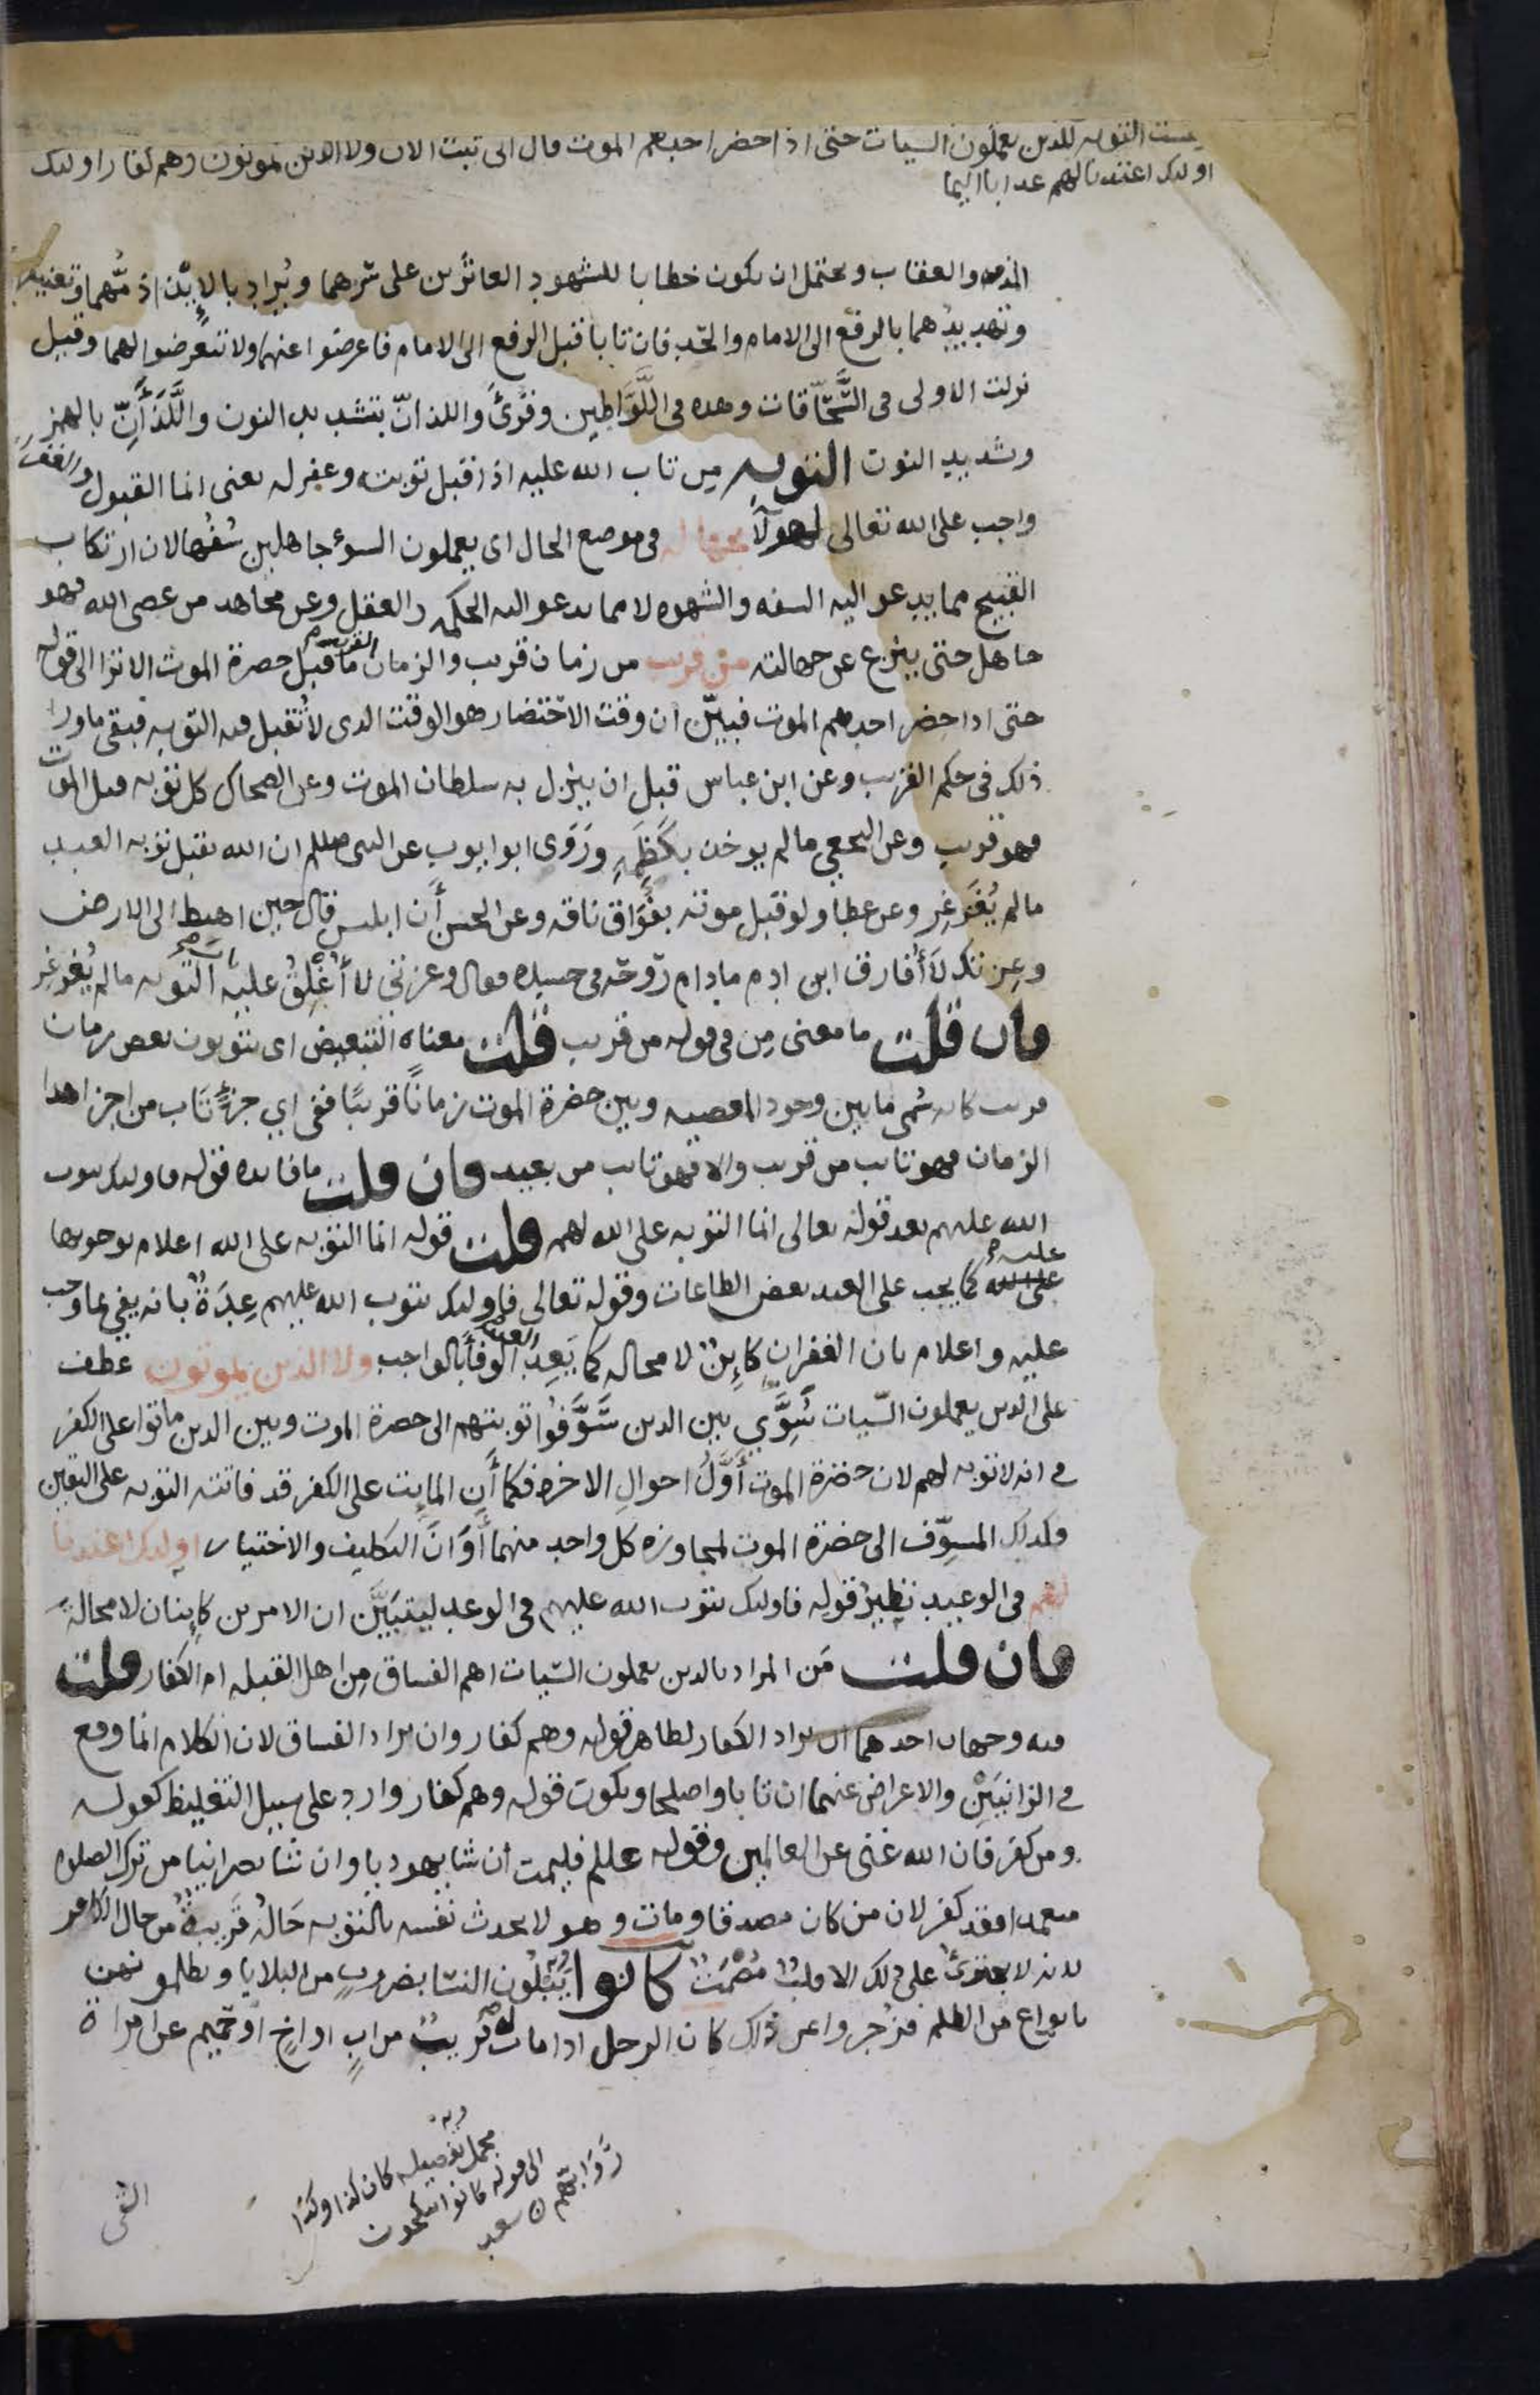 ليست التوبه للذين يعملون السيات حتى اذا حضر احدهم الموت قال انى تبت الان ولا الذين يموتون وهم كفار اولىك
اولىك اعتدنا لهم عذابا اليما
المذمه والعقاب ويحتمل ان يكون خطابا للشهود العاثرين على سرهما ويُراد بالإيذاء ذمُّهما وتعنيفهما
وتهديدُهما بالرفع الى الامام والحّد فان تابا قبل الرفع الى الامام فاعرضوا عنهما ولا تتعرضوا لهما وقيل
نزلت الاولى فى السَّحّاقات وهده فى اللَّوَّاطين وقُرئ واللذانّ بتشديد النون واللَّذَأَنِّ بالهمز
وتشديد النون التوبه مِن تاب الله عليه اذا قبل توبته وغفر له يعنى انما القبول والغفران
واجب على الله تعالى لهولآ بجهالة فى موضع الحال اى يعملون السوء جاهلين سُفهالان ارتكاب
القبيح مما يدعو اليه السفه والشهوه لا مما يدعو اليه الحكمه والعقل وعن مجاهد من عصى الله فهو
جاهل حتى ينزع عن جهالته من قريب من زمان قريب والزمان القريب ما قبل حضرة الموت الا ترا الى قوله
حتى اذا حضر احدهم الموت فبيّن ان وقت الاحتضار هو الوقت الدى لا تُقبل فيه التوبه فبقى ماورا
ذلك فى حكم القريب وعن ابن عباس قبل ان ينزل به سلطان الموت وعن الضحاك كل توبه قبل الموت
فهو قريب وعن النخعي مالم يوخذ بكَظَمِهِ ورَوَى ابو ايوب عن النبى صللم ان الله يقبل توبه العبد
مالم يُغَرغِر وعن عطا ولو قبل موته بفُوَاق ناقه وعن الحسن أن ابليس قال حين اهبط الى الارض
وعِزتك لَأُفارق ابن ادم مادام رَوحّه فى جسده فقال وعزتى لا أُغْلِقُ عليه باب التوبه مالم يُغرغِر
فان قلت ما معنى مِن فى قوله من قريب قلت معناه التبعيض اى يتوبون بعض زمان
قريب كانه سُمى ما بين وجود المعصيه وبين حضرة الموت زمانًا قريبًا ففى اي جزءٍ تَاب من اجزا هدا
الزمان فهو تايب من قريب والا فهو تايب من بعيد فان قلت ما فايده قوله فاوليك يتوب
الله عليهم بعد قوله تعالى انما التوبه على الله لهم قلت قوله انما التوبه على الله اعلام بوجوبها
عليه كما يجب على العبد بعض الطاعات وقوله تعالى فاوليك يتوب الله عليهم عِدَةٌ بانه يفي بما وجب
عليه واعلام بان الغفران كايِنٌ لا محاله كما يَعِدُ العبد الوفأبالواجب ولا الذين يموتون عطف
على الذين يعملون السّيات سُوِّي بين الدين سَّوَّفُوا توبتهم الى حضرة الموت وبين الدين ماتوا على الكفر
فى انه لا توبه لهم لان حضرة الموت أوَّلُ احوال الاخره فكما أَن المايت على الكفر قد فاتته التوبه على اليقين
فكذلك المسوِّف الى حضرة الموت لمجاوزه كل واحد منهما أَوَانَ التكليف والاختيار اوليك اعتدنا
لهم فى الوعيد نظيرُ قوله فاوليك يتوب الله عليهم فى الوعد ليَتبَيَّن ان الامرين كاينان لا محالة
فان قلت مَن المراد بالدين يعملون السّيات اهم الفساق مِن اهل القبله ام الكفار قلت
فيه وجهان احدهما ان يراد الكفار لظاهر قوله وهم كفار وان يراد الفساق لان الكلام انما وقع
فى الزانيَيْنِ والاعراض عنهما ان تابا واصلحا ويكون قوله وهم كفار وارد على سبيل التغليظ كقوله
ومن كفر فان الله غنى عن العالمين وقوله عللم فليمت أن شا يهوديا وان شا نصرانيا من ترك الصلوه
متعمدا فقد كفر لان من كان مصدقا ومات وهو لا يحدث نفسه بالتوبه حَالُه قَرِيبةٌ من حال الكافر
لانه لا يجترئُ على ذلك الا قلبٌ مُصْمَتٌ كانوا يَبْلُون النسا بضروبٍ من البلايا ويظلمونهن
بانواع من الظلم فزُجروا عن ذلك كان الرجل اذا مات له قريبٌ من ابٍ او اخٍ او حميم عن امراة
مجمل تفصيله كان كذا وكذا
الى قوله كانوا ينكحون
رَوَابَّهم ن سعد
التى